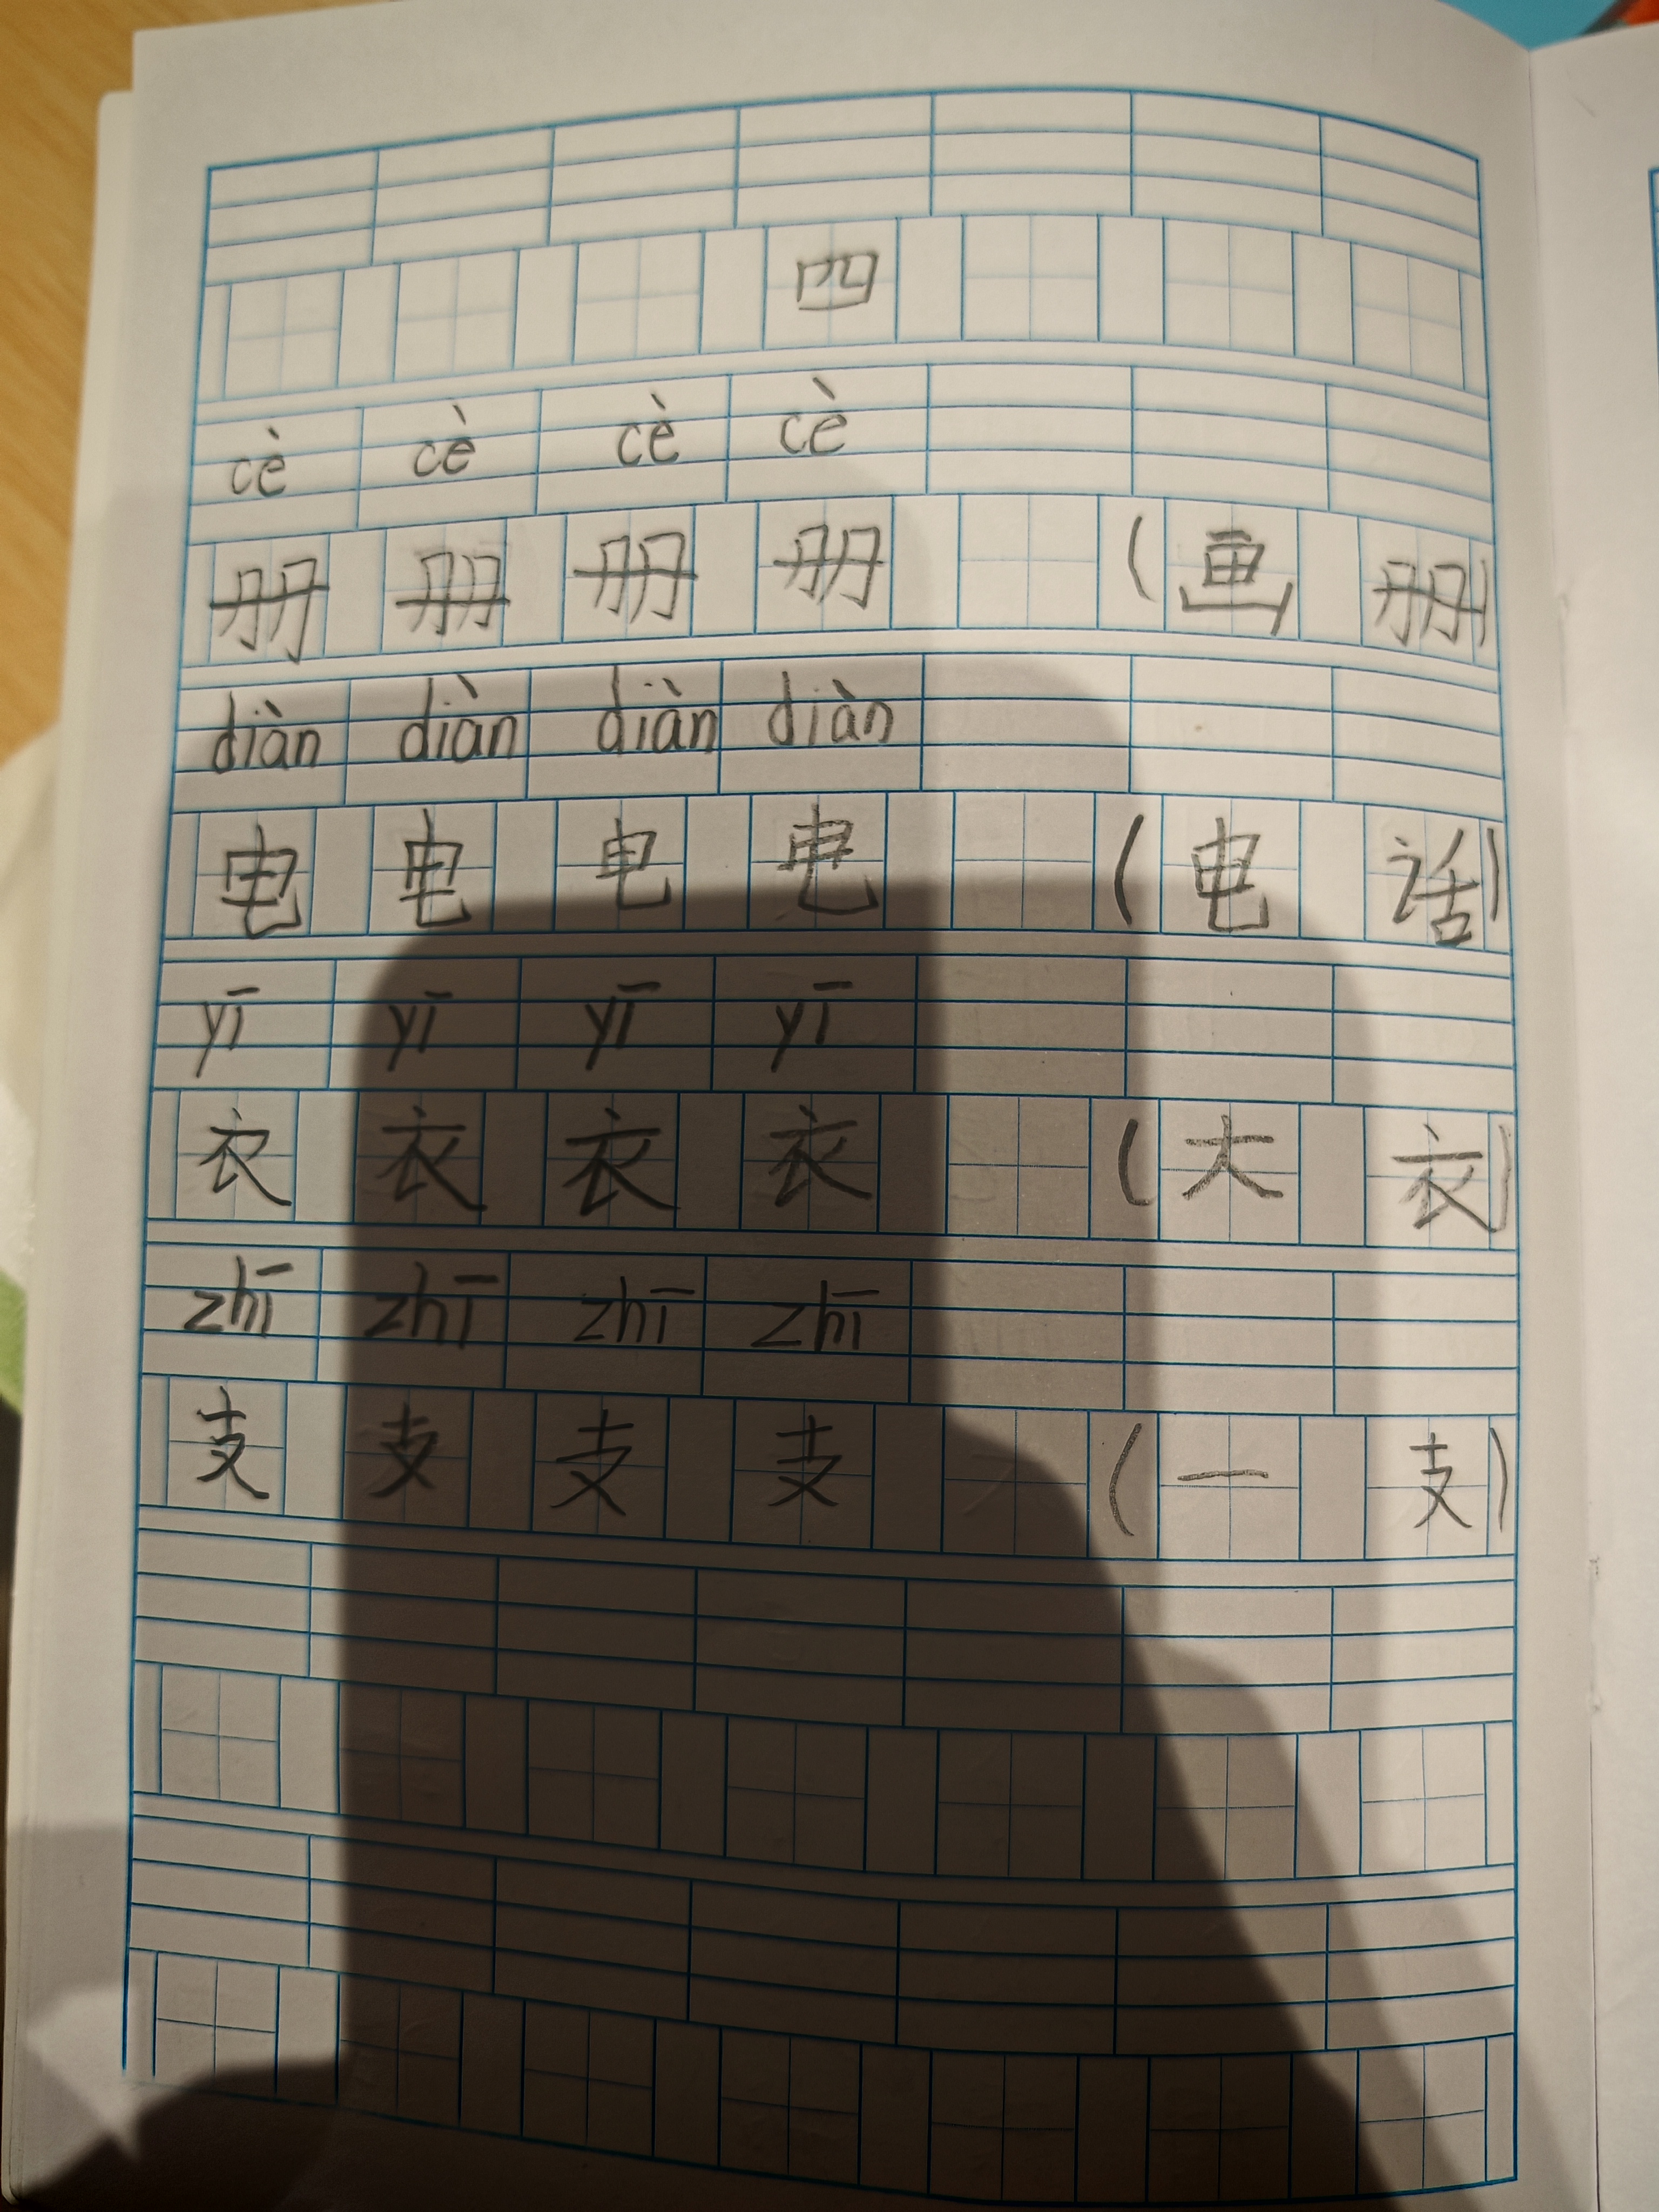 四
cè cè cè cè
册 册 册 册 (画 册)
diàn diàn diàn diàn
电 电 电 电 (电 话)
yī yī yī yī
衣 衣 衣 衣 (大 衣)
zhī zhī zhī zhī
支 支 支 支 (一 支)